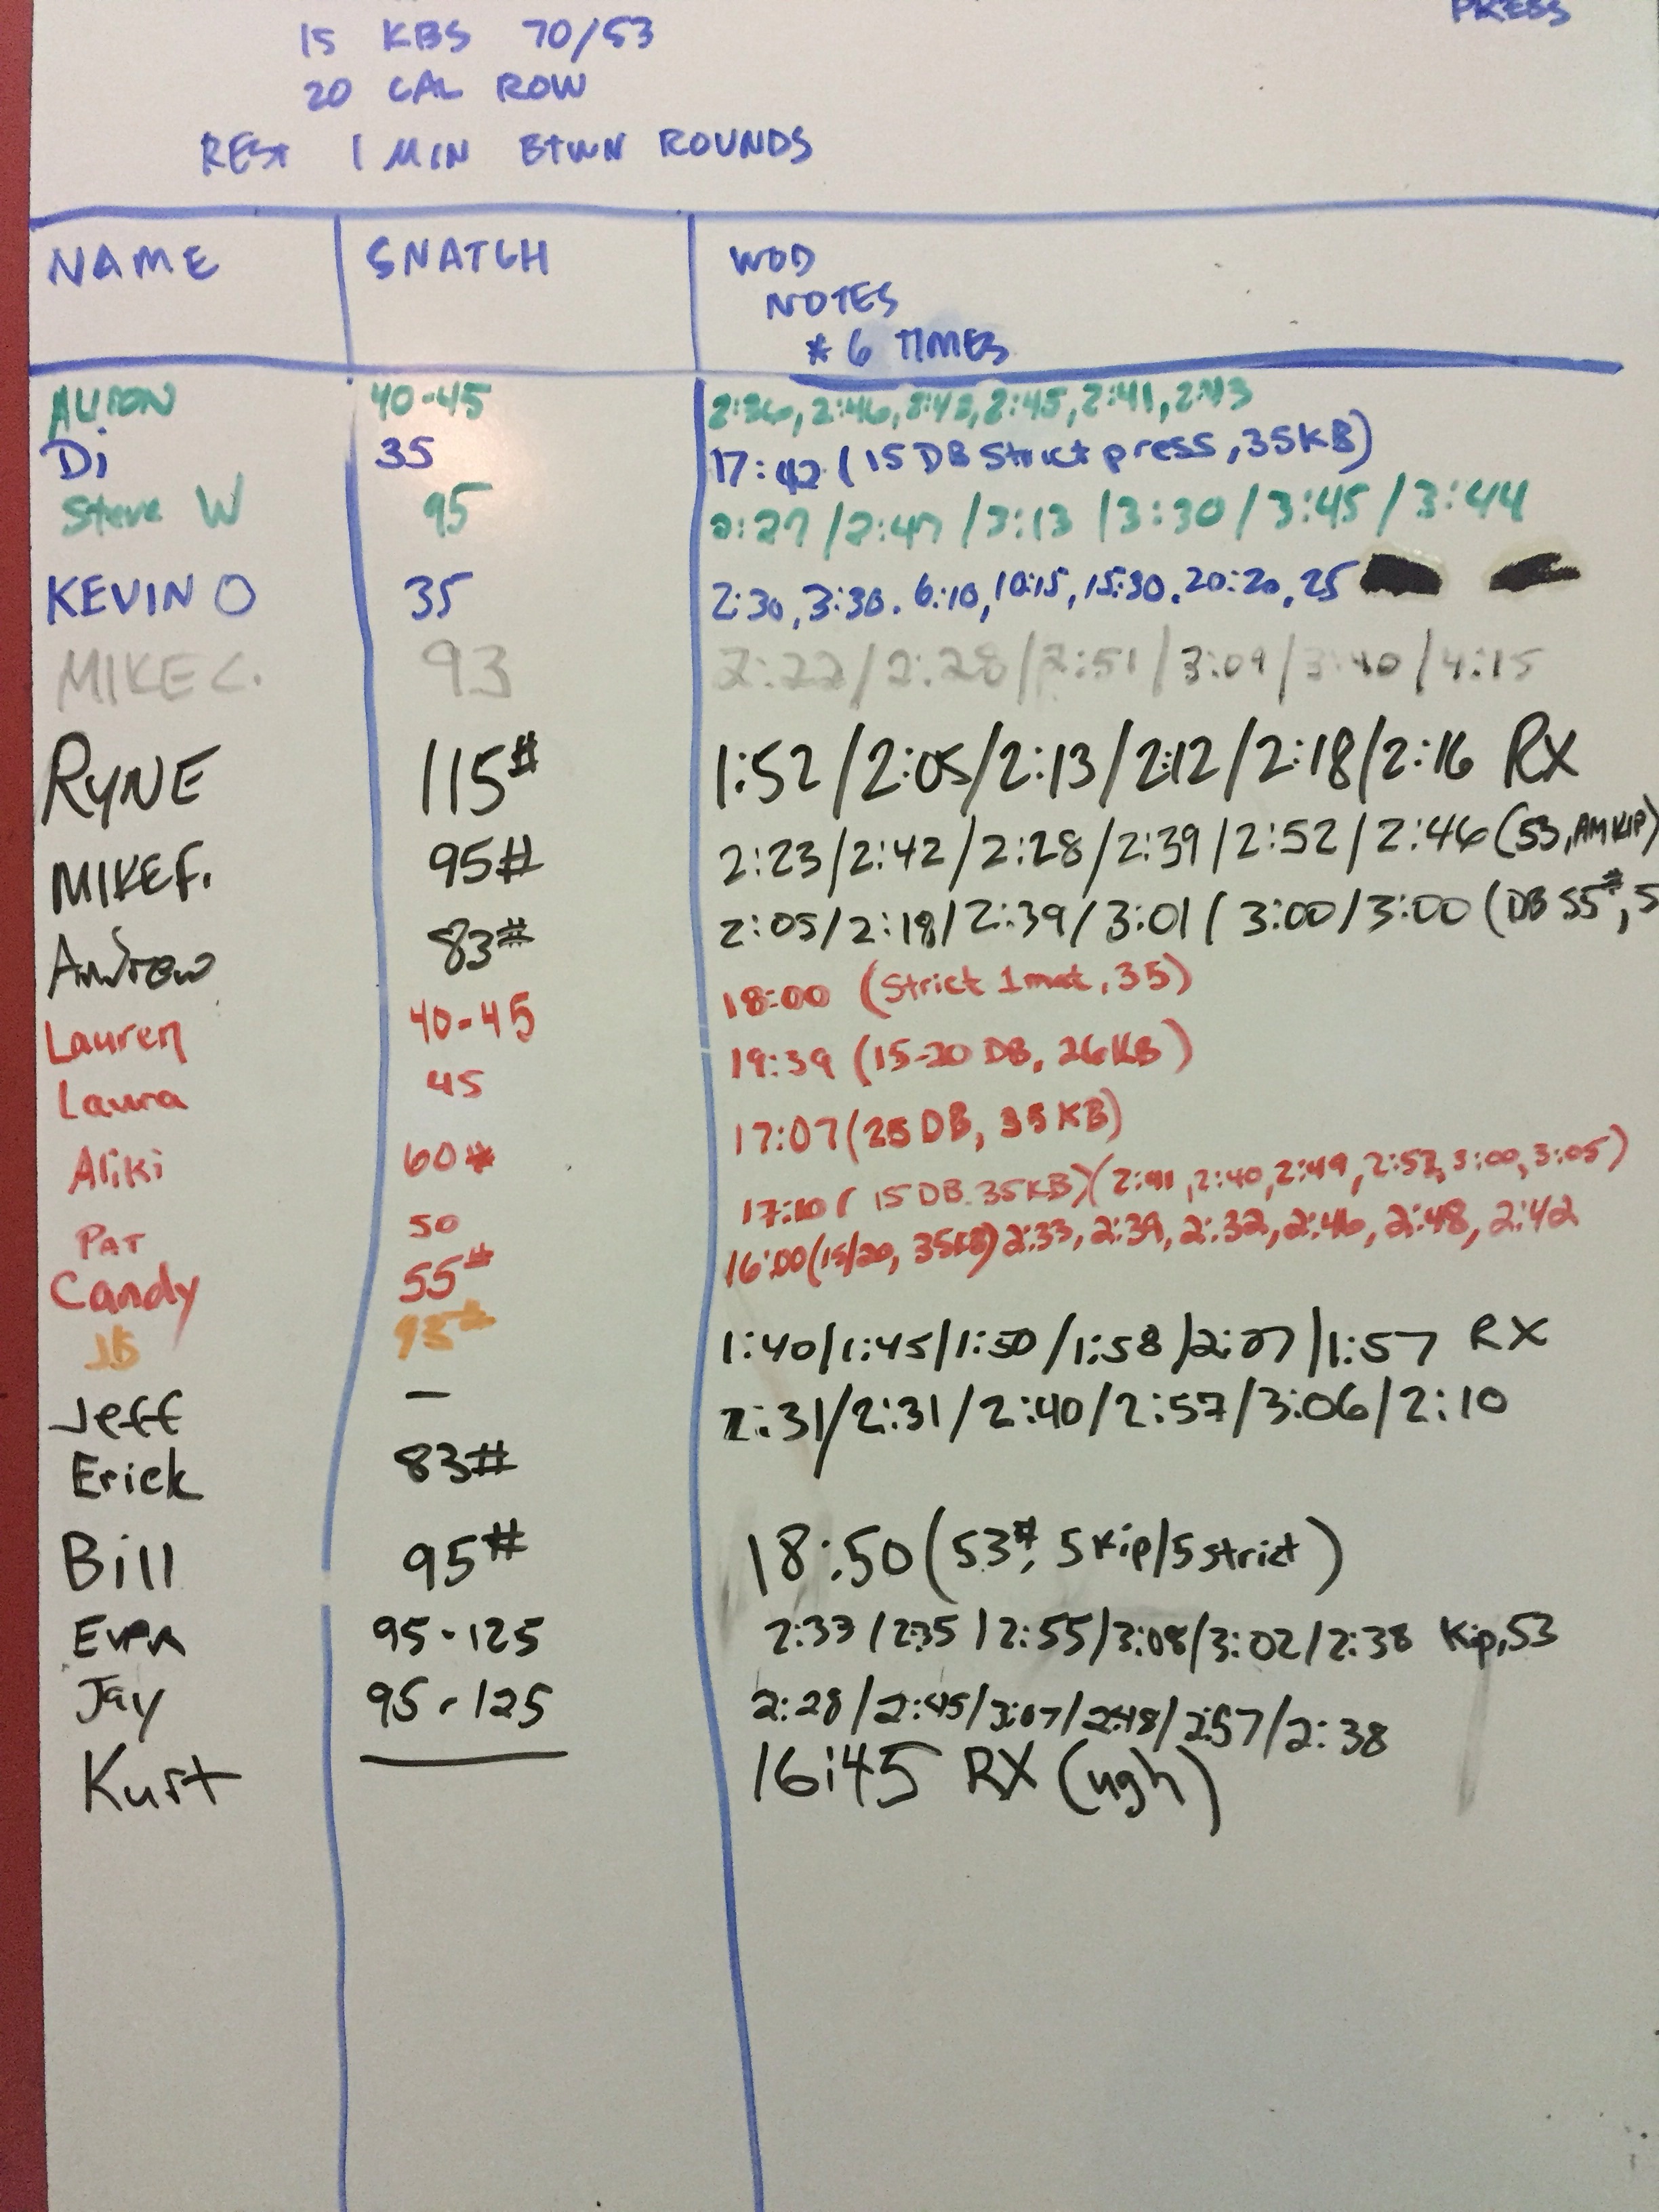 PRESS
15 KBS 70/53
20 CAL ROW
REST 1 MIN BTWN ROUNDS
NAME SNATCH WOD
NOTES
* 6 TIMES
40-45 2:36, 2:46, 2:45, 2:41, 2:43
Di 35 17:42 (15 DB Strict press, 35KB)
Steve W 95 2:27 / 2:47 / 3:13 / 3:30 / 3:45 / 3:44
KEVIN O 35 2:30, 3:30. 6:10, 10:15, 15:30. 20:20, 25
MIKE C. 93 2:22/2:28/2:51/3:09/3:40/4:15
RYNE 115# 1:52/2:05/2:13/2:12/2:18/2:16 RX
MIKE F. 95# 2:23/2:42/2:28/2:39/2:52/2:46 (53, AMKIP)
Andrew 83# 2:05/2:18/2:39/3:01/3:00/3:00 (DB 55#, 5
Lauren 40-45 18:00 (Strict 1mat, 35)
Laura 45 19:39 (15-20 DB, 26KB)
Aliki 60# 17:07 (25 DB, 35 KB)
PAT 50 17:10 ( 15 DB. 35KB) (2:41, 2:40, 2:49, 2:52, 3:00, 3:05)
Candy 55# 16:00 (15/20, 35KB) 2:33, 2:39, 2:32, 2:46, 2:48, 2:42
JB 95# 1:40/1:45/1:50/1:58/2:07/1:57 RX
Jeff — 2:31/2:31/2:40/2:57/3:06/2:10
Erick 83#
Bill 95# 18:50 (53#, 5 Kip/5 strict)
Evan 95-125 2:33/2:35/2:55/3:08/3:02/2:38 Kip, 53
Jay 95-125 2:28/2:45/3:07/2:48/2:57/2:38
Kurt — 16:45 RX (ugh)